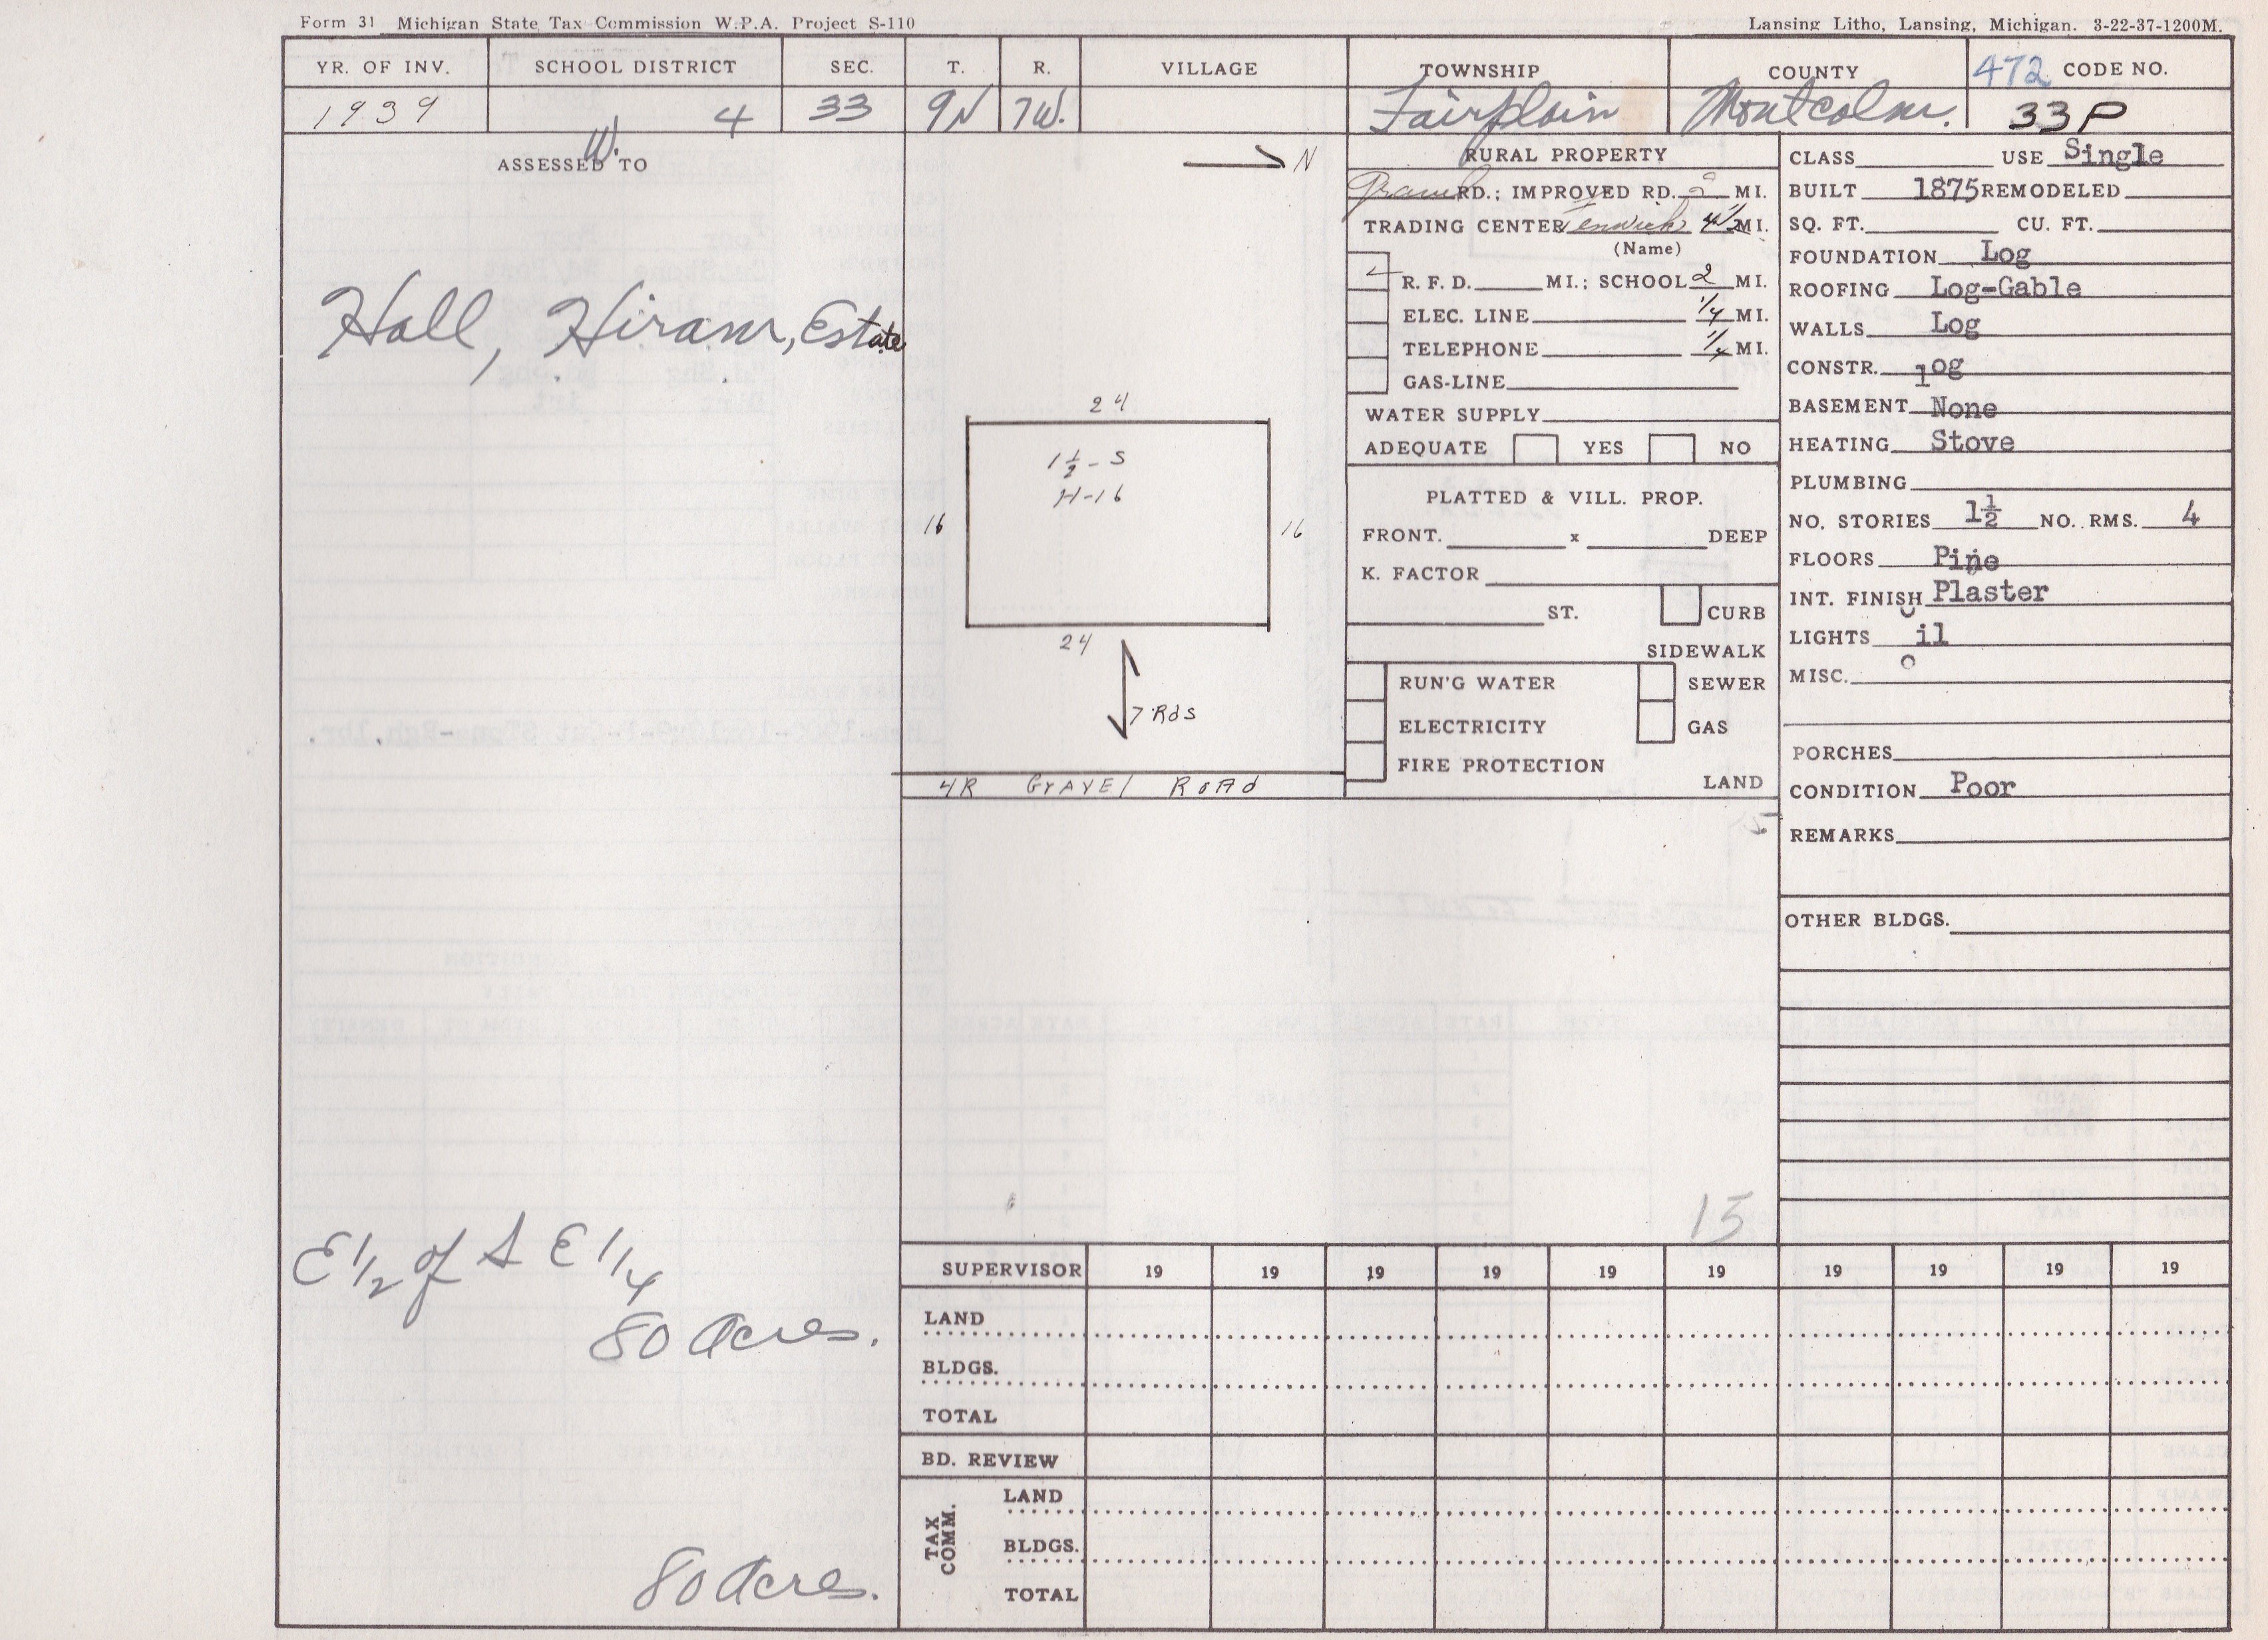 Form 31 Michigan State Tax Commission W.P.A. Project S-110
Lansing Litho, Lansing, Michigan. 3-22-37-1200M.
YR. OF INV. SCHOOL DISTRICT SEC. T. R. VILLAGE TOWNSHIP COUNTY 472 CODE NO.
1939 4 33 9N 7W. Fairplain Montcalm. 33P
W.
ASSESSED TO
Hall, Hiram, Estate
E 1/2 of S E 1/4
80 acres.
80 acres.
N
24
1 1/2 - S
H-16
16
16
24
7 Rds
4R GRAVEL ROAD
RURAL PROPERTY
Gravel RD.; IMPROVED RD. 2 MI.
TRADING CENTER Fenwick 4 1/2 MI.
(Name)
4 R. F. D. MI.; SCHOOL 2 MI.
ELEC. LINE 1/4 MI.
TELEPHONE 1/4 MI.
GAS-LINE
WATER SUPPLY
ADEQUATE YES NO
PLATTED & VILL. PROP.
FRONT. x DEEP
K. FACTOR
ST. CURB
SIDEWALK
RUN'G WATER SEWER
ELECTRICITY GAS
FIRE PROTECTION
LAND
15
CLASS USE Single
BUILT 1875 REMODELED
SQ. FT. CU. FT.
FOUNDATION Log
ROOFING Log-Gable
WALLS Log
CONSTR. log
BASEMENT None
HEATING Stove
PLUMBING
NO. STORIES 1½ NO. RMS. 4
FLOORS Pine
INT. FINISH Plaster
LIGHTS il
MISC.
PORCHES
CONDITION Poor
REMARKS
OTHER BLDGS.
SUPERVISOR 19 19 19 19 19 19 19 19 19 19
LAND
BLDGS.
TOTAL
BD. REVIEW
TAX COMM.
LAND
BLDGS.
TOTAL